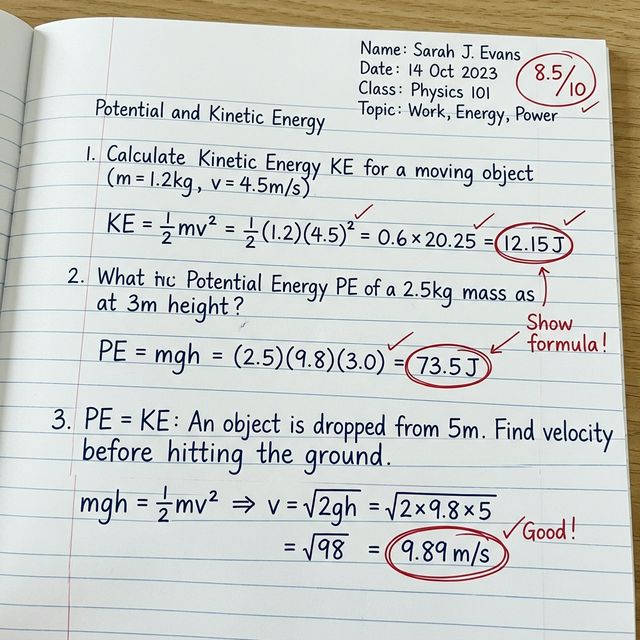 Name: Sarah J. Evans
Date: 14 Oct 2023
Class: Physics 101
Topic: Work, Energy, Power
8.5/10
Potential and Kinetic Energy
1. Calculate Kinetic Energy KE for a moving object
(m = 1.2kg, v = 4.5m/s)
KE = ½mv² = ½(1.2)(4.5)² = 0.6 × 20.25 = 12.15 J
2. What Potential Energy PE of a 2.5kg mass as
at 3m height?
Show
formula!
PE = mgh = (2.5)(9.8)(3.0) = 73.5 J
3. PE = KE: An object is dropped from 5m. Find velocity
before hitting the ground.
mgh = ½mv² ⇒ v = √2gh = √2×9.8×5
= √98 = 9.89 m/s
Good!